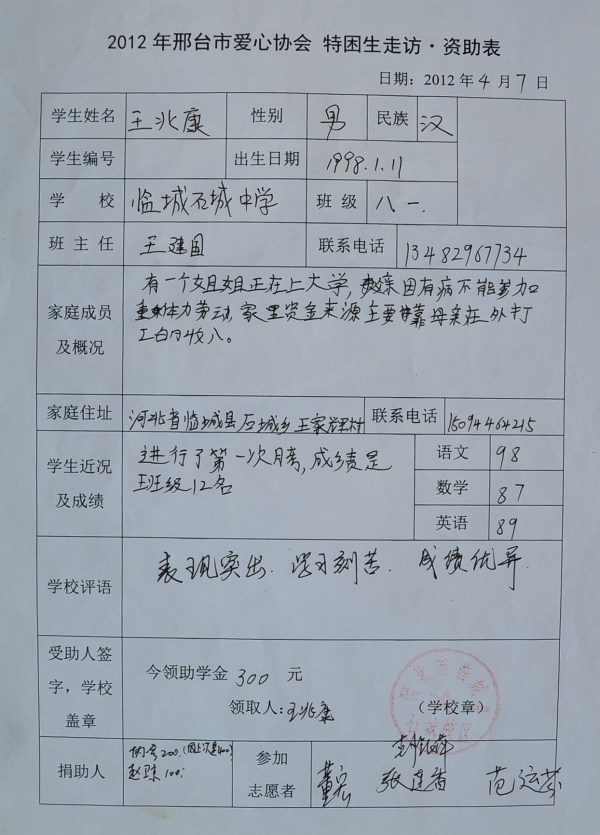 2012年邢台市爱心协会 特困生走访·资助表
日期：2012年4月7日
学生姓名 王兆康 性别 男 民族 汉
学生编号 出生日期 1998.1.11
学 校 临城石城中学 班 级 八一.
班 主 任 王建国 联系电话 13482967734
家庭成员及概况
有一个姐姐正在上大学,父亲因有病不能参加
重体力劳动,家里资金来源主要靠母亲在外打
工的收入。
家庭住址 河北省临城县石城乡王家辉村 联系电话 15094464215
学生近况及成绩
进行了第一次月考,成绩是
班级12名
语文 98
数学 87
英语 89
学校评语 表现突出.学习刻苦.成绩优异.
受助人签字，学校盖章
今领助学金 300 元
领取人:王兆康 （学校章）
捐助人
200
赵 100
参加志愿者
董宏 张连香 范运芬